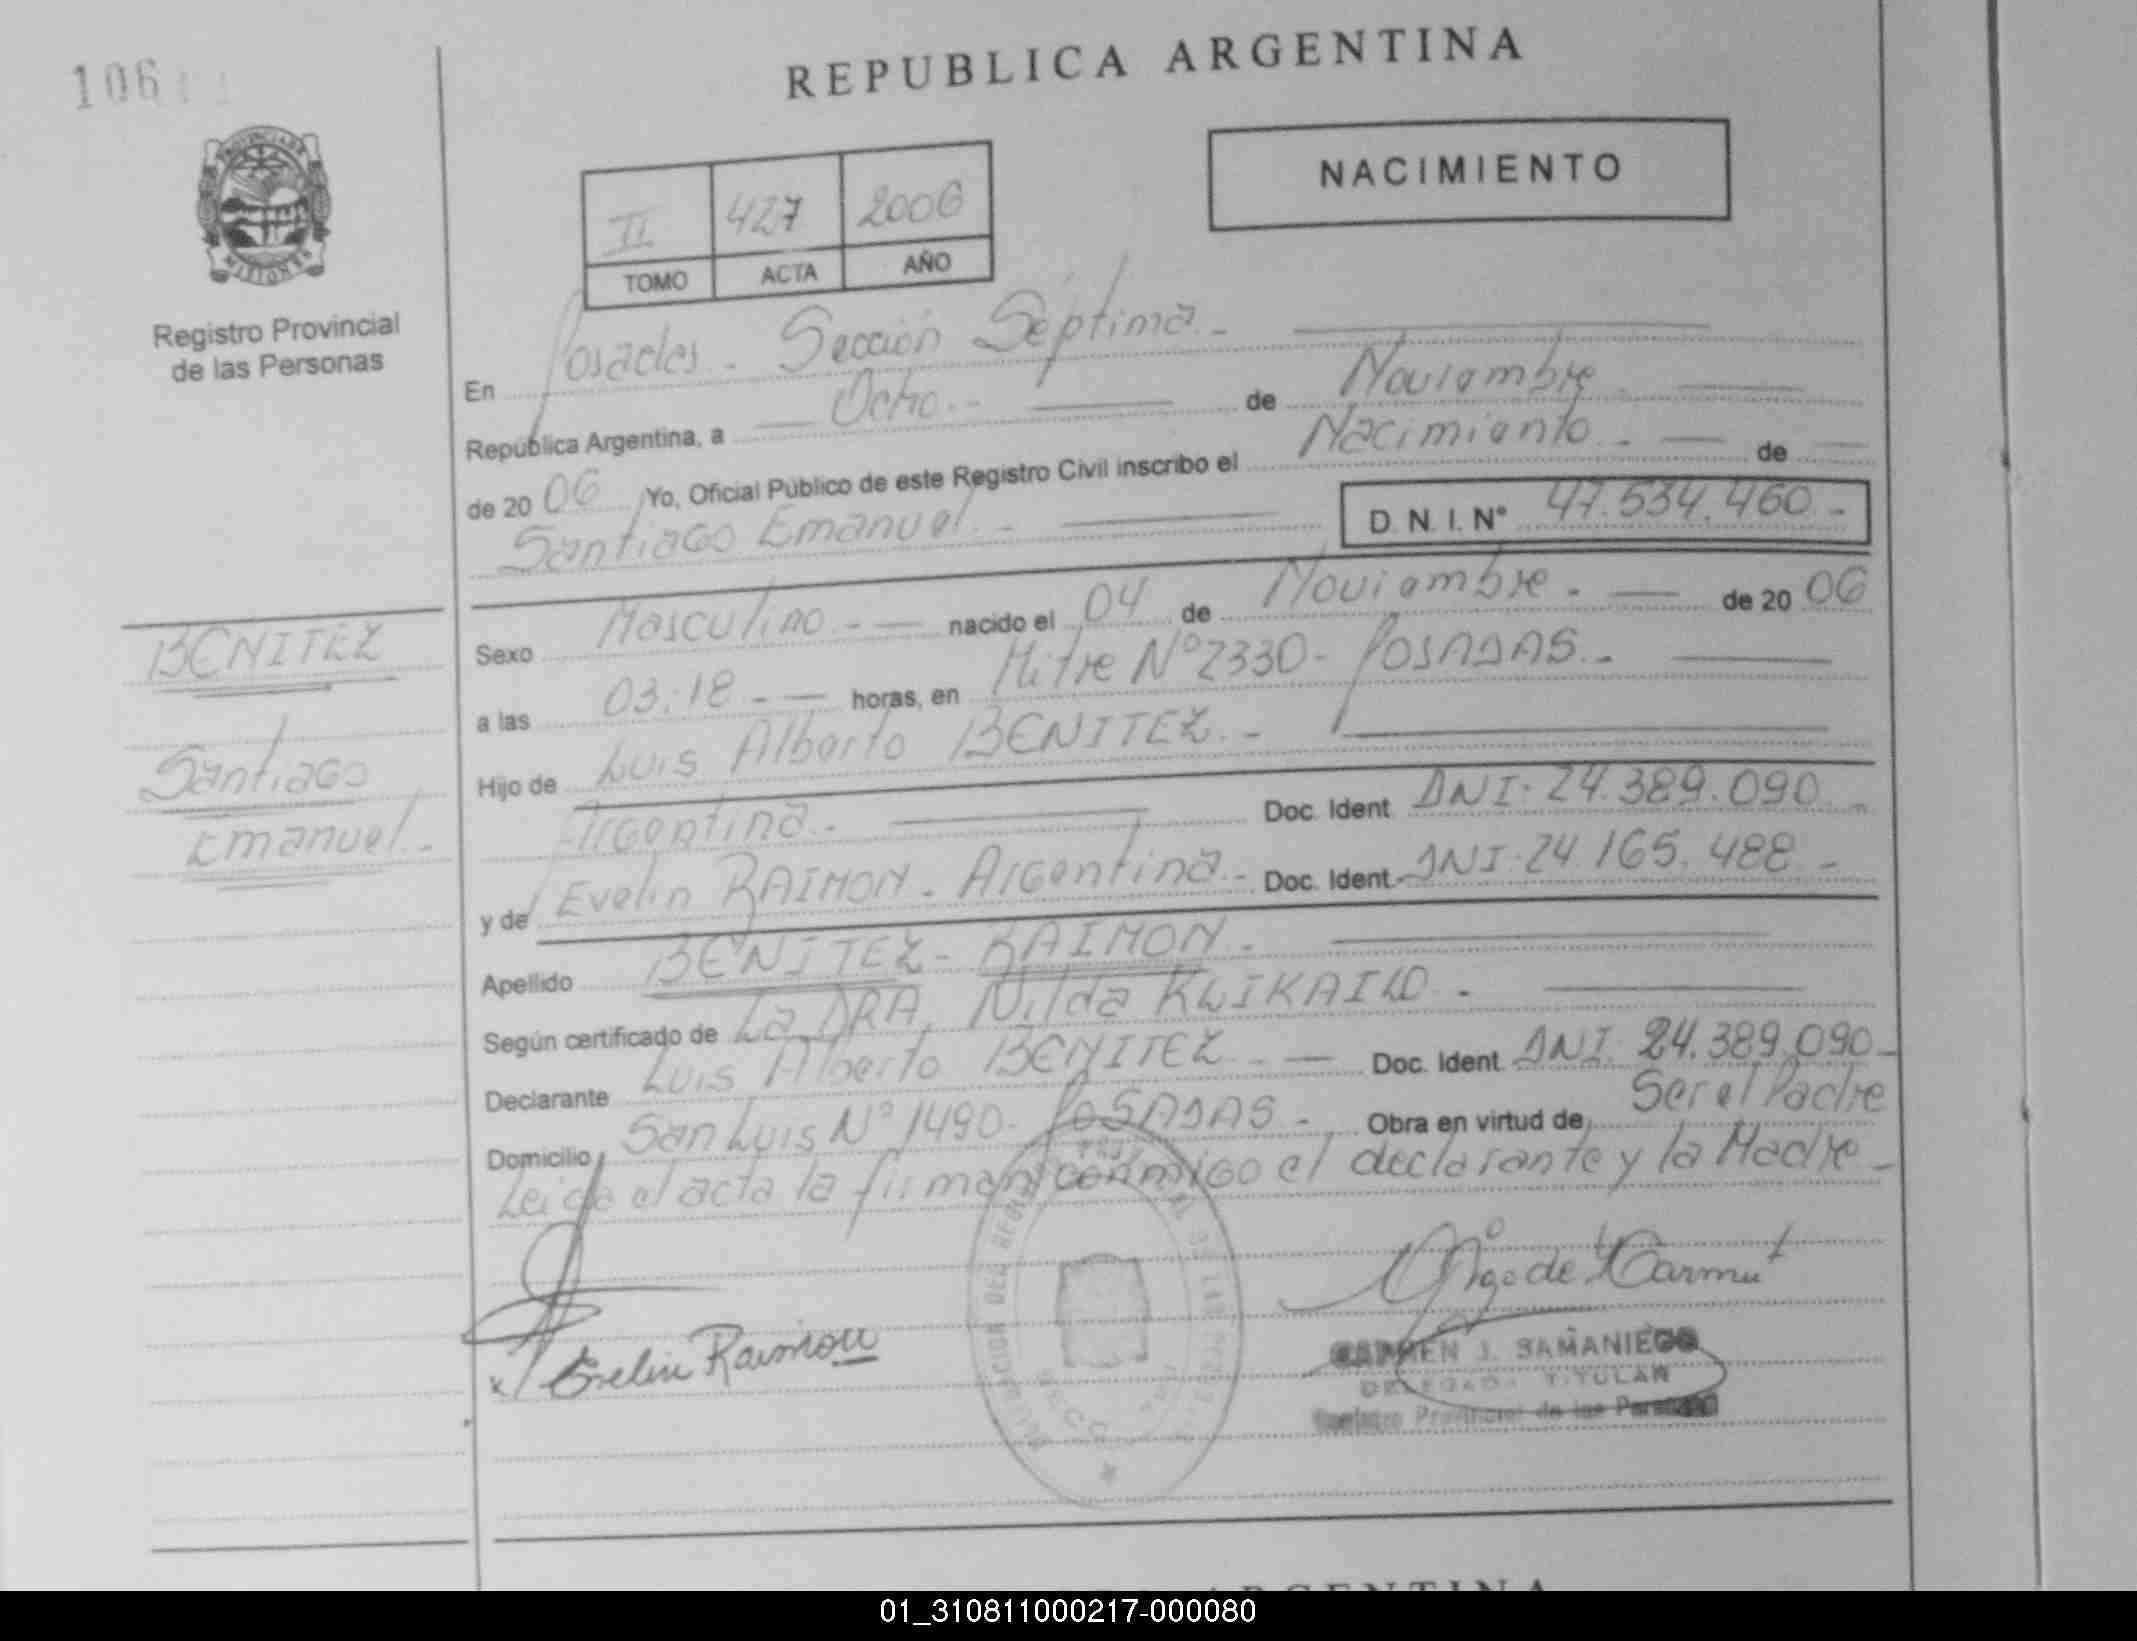 106
REPUBLICA ARGENTINA
NACIMIENTO
II 427 2006
TOMO ACTA AÑO
PROVINCIA DE
MISIONES
Registro Provincial
de las Personas
En Posadas - Sección Séptima.-
República Argentina, a Ocho.- de Noviembre
de 2006 Yo, Oficial Público de este Registro Civil inscribo el Nacimiento.- de
Santiago Emanuel.- D. N. I. Nº 47.534.460.-
BENITEZ
Santiago
Emanuel.-
Sexo Masculino.- nacido el 04 de Noviembre.- de 2006
a las 03:18.- horas, en Mitre Nº 2330- POSADAS.-
Hijo de Luis Alberto BENITEZ.-
Argentina.- Doc. Ident. DNI. 24.389.090.-
y de Evelin RAIMON. Argentina.- Doc. Ident. DNI. 24.165.488.-
Apellido BENITEZ- RAIMON.-
Según certificado de La DRA. Nilda
Declarante Luis Alberto BENITEZ.- Doc. Ident. DNI. 24.389.090-
Domicilio San Luis Nº 1490- POSADAS.- Obra en virtud de Ser el Padre
Leida el acta la firman conmigo el declarante y la Madre-
x Evelin Raimon
CARMEN J. SAMANIEGO
DELEGADA TITULAR
Registro Provincial de las Personas
ARGENTINA
01_310811000217-000080